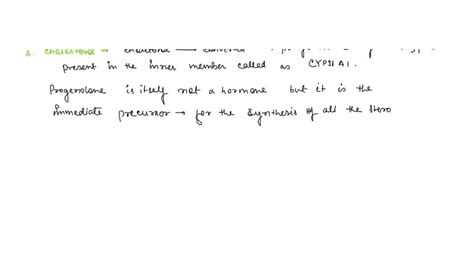 a. cholesterol
present in the inner member called as CYP11A1.
Progenolone is itself not a hormone but it is the
immediate precursor → for the synthesis of all the stero